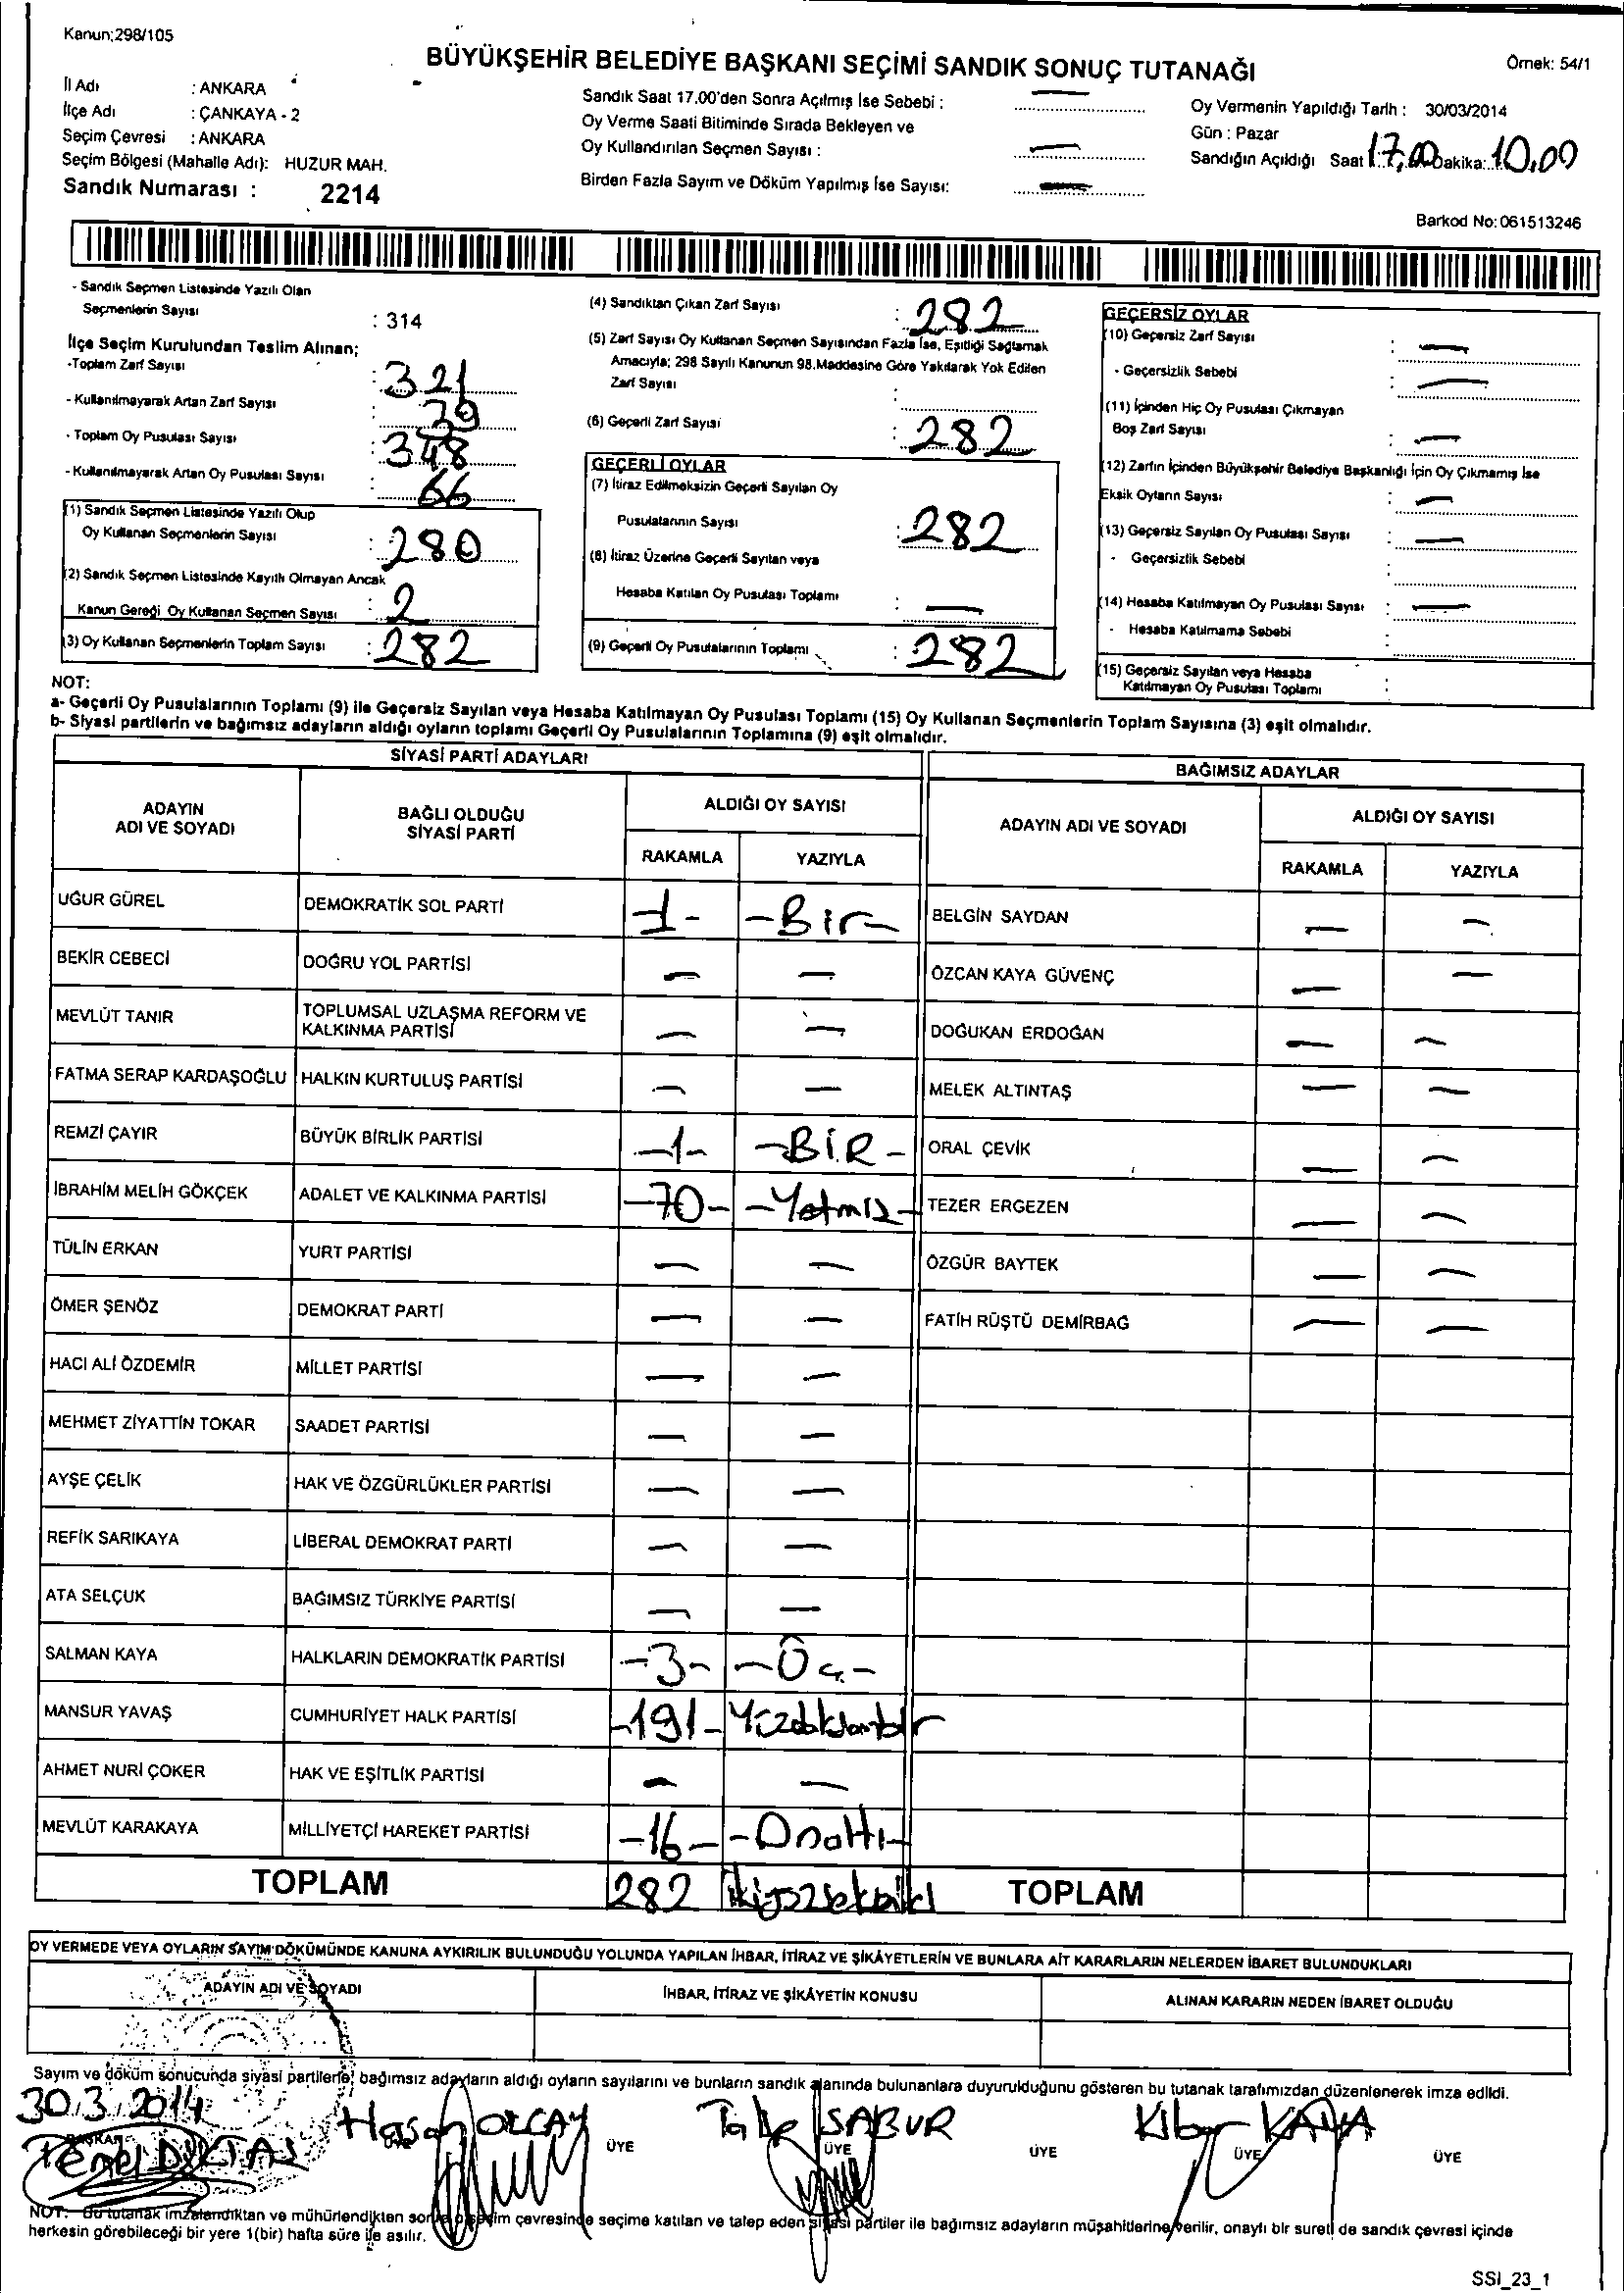 Kanun;298/105
BÜYÜKŞEHİR BELEDİYE BAŞKANI SEÇİMİ SANDIK SONUÇ TUTANAĞI
Örnek: 54/1
İl Adı : ANKARA
İlçe Adı : ÇANKAYA - 2
Seçim Çevresi : ANKARA
Seçim Bölgesi (Mahalle Adı): HUZUR MAH.
Sandık Numarası : 2214
Sandık Saat 17.00'den Sonra Açılmış İse Sebebi : —
Oy Verme Saati Bitiminde Sırada Bekleyen ve
Oy Kullandırılan Seçmen Sayısı : —
Birden Fazla Sayım ve Döküm Yapılmış İse Sayısı: —
Oy Vermenin Yapıldığı Tarih : 30/03/2014
Gün : Pazar
Sandığın Açıldığı Saat 17,00 Dakika: 10,00
Barkod No:061513246
- Sandık Seçmen Listesinde Yazılı Olan
Seçmenlerin Sayısı : 314
İlçe Seçim Kurulundan Teslim Alınan;
-Toplam Zarf Sayısı : 321
- Kullanılmayarak Artan Zarf Sayısı : 39
- Toplam Oy Pusulası Sayısı : 348
- Kullanılmayarak Artan Oy Pusulası Sayısı : 66
(1) Sandık Seçmen Listesinde Yazılı Olup
Oy Kullanan Seçmenlerin Sayısı : 280
(2) Sandık Seçmen Listesinde Kayıtlı Olmayan Ancak
Kanun Gereği Oy Kullanan Seçmen Sayısı : 2
(3) Oy Kullanan Seçmenlerin Toplam Sayısı : 282
(4) Sandıktan Çıkan Zarf Sayısı : 282
(5) Zarf Sayısı Oy Kullanan Seçmen Sayısından Fazla İse, Eşitliği Sağlamak
Amacıyla; 298 Sayılı Kanunun 98.Maddesine Göre Yakılarak Yok Edilen
Zarf Sayısı :
(6) Geçerli Zarf Sayısı : 282
GEÇERLİ OYLAR
(7) İtiraz Edilmeksizin Geçerli Sayılan Oy
Pusulalarının Sayısı : 282
(8) İtiraz Üzerine Geçerli Sayılan veya
Hesaba Katılan Oy Pusulası Toplamı : —
(9) Geçerli Oy Pusulalarının Toplamı : 282
GEÇERSİZ OYLAR
(10) Geçersiz Zarf Sayısı : —
- Geçersizlik Sebebi : —
(11) İçinden Hiç Oy Pusulası Çıkmayan
Boş Zarf Sayısı : —
(12) Zarfın İçinden Büyükşehir Belediye Başkanlığı İçin Oy Çıkmamış İse
Eksik Oyların Sayısı : —
(13) Geçersiz Sayılan Oy Pusulası Sayısı : —
- Geçersizlik Sebebi :
(14) Hesaba Katılmayan Oy Pusulası Sayısı : —
- Hesaba Katılmama Sebebi :
(15) Geçersiz Sayılan veya Hesaba
Katılmayan Oy Pusulası Toplamı :
NOT:
a- Geçerli Oy Pusulalarının Toplamı (9) ile Geçersiz Sayılan veya Hesaba Katılmayan Oy Pusulası Toplamı (15) Oy Kullanan Seçmenlerin Toplam Sayısına (3) eşit olmalıdır.
b- Siyasi partilerin ve bağımsız adayların aldığı oyların toplamı Geçerli Oy Pusulalarının Toplamına (9) eşit olmalıdır.
SİYASİ PARTİ ADAYLARI
ADAYIN ADI VE SOYADI
BAĞLI OLDUĞU SİYASİ PARTİ
ALDIĞI OY SAYISI
RAKAMLA YAZIYLA
UĞUR GÜREL DEMOKRATİK SOL PARTİ -1- -Bir-
BEKİR CEBECİ DOĞRU YOL PARTİSİ — —
MEVLÜT TANIR TOPLUMSAL UZLAŞMA REFORM VE KALKINMA PARTİSİ — —
FATMA SERAP KARDAŞOĞLU HALKIN KURTULUŞ PARTİSİ — —
REMZİ ÇAYIR BÜYÜK BİRLİK PARTİSİ -1- -BİR-
İBRAHİM MELİH GÖKÇEK ADALET VE KALKINMA PARTİSİ -70- -Yetmiş-
TÜLİN ERKAN YURT PARTİSİ — —
ÖMER ŞENÖZ DEMOKRAT PARTİ — —
HACI ALİ ÖZDEMİR MİLLET PARTİSİ — —
MEHMET ZİYATTİN TOKAR SAADET PARTİSİ — —
AYŞE ÇELİK HAK VE ÖZGÜRLÜKLER PARTİSİ — —
REFİK SARIKAYA LİBERAL DEMOKRAT PARTİ — —
ATA SELÇUK BAĞIMSIZ TÜRKİYE PARTİSİ — —
SALMAN KAYA HALKLARIN DEMOKRATİK PARTİSİ -3- -Üç-
MANSUR YAVAŞ CUMHURİYET HALK PARTİSİ -191- Yüzdoksanbir
AHMET NURİ ÇOKER HAK VE EŞİTLİK PARTİSİ — —
MEVLÜT KARAKAYA MİLLİYETÇİ HAREKET PARTİSİ -16- -Onaltı-
TOPLAM 282 İkiyüzseksaiki
BAĞIMSIZ ADAYLAR
ADAYIN ADI VE SOYADI
ALDIĞI OY SAYISI
RAKAMLA YAZIYLA
BELGİN SAYDAN — —
ÖZCAN KAYA GÜVENÇ — —
DOĞUKAN ERDOĞAN — —
MELEK ALTINTAŞ — —
ORAL ÇEVİK — —
TEZER ERGEZEN — —
ÖZGÜR BAYTEK — —
FATİH RÜŞTÜ DEMİRBAĞ — —
TOPLAM
OY VERMEDE VEYA OYLARIN SAYIM DÖKÜMÜNDE KANUNA AYKIRILIK BULUNDUĞU YOLUNDA YAPILAN İHBAR, İTİRAZ VE ŞİKÂYETLERİN VE BUNLARA AİT KARARLARIN NELERDEN İBARET BULUNDUKLARI
ADAYIN ADI VE SOYADI
İHBAR, İTİRAZ VE ŞİKÂYETİN KONUSU
ALINAN KARARIN NEDEN İBARET OLDUĞU
Sayım ve döküm sonucunda siyasi partilerle, bağımsız adayların aldığı oyların sayılarını ve bunların sandık alanında bulunanlara duyurulduğunu gösteren bu tutanak tarafımızdan düzenlenerek imza edildi.
30.3.2014
Hasan OLCAY
SABUR
KAYA
BAŞKAN ÜYE ÜYE ÜYE ÜYE ÜYE ÜYE
NOT: Bu tutanak imzalandıktan ve mühürlendikten sonra o seçim çevresinde seçime katılan ve talep eden siyasi partiler ile bağımsız adayların müşahitlerine verilir, onaylı bir sureti de sandık çevresi içinde
herkesin görebileceği bir yere 1(bir) hafta süre ile asılır.
SSI_23_1